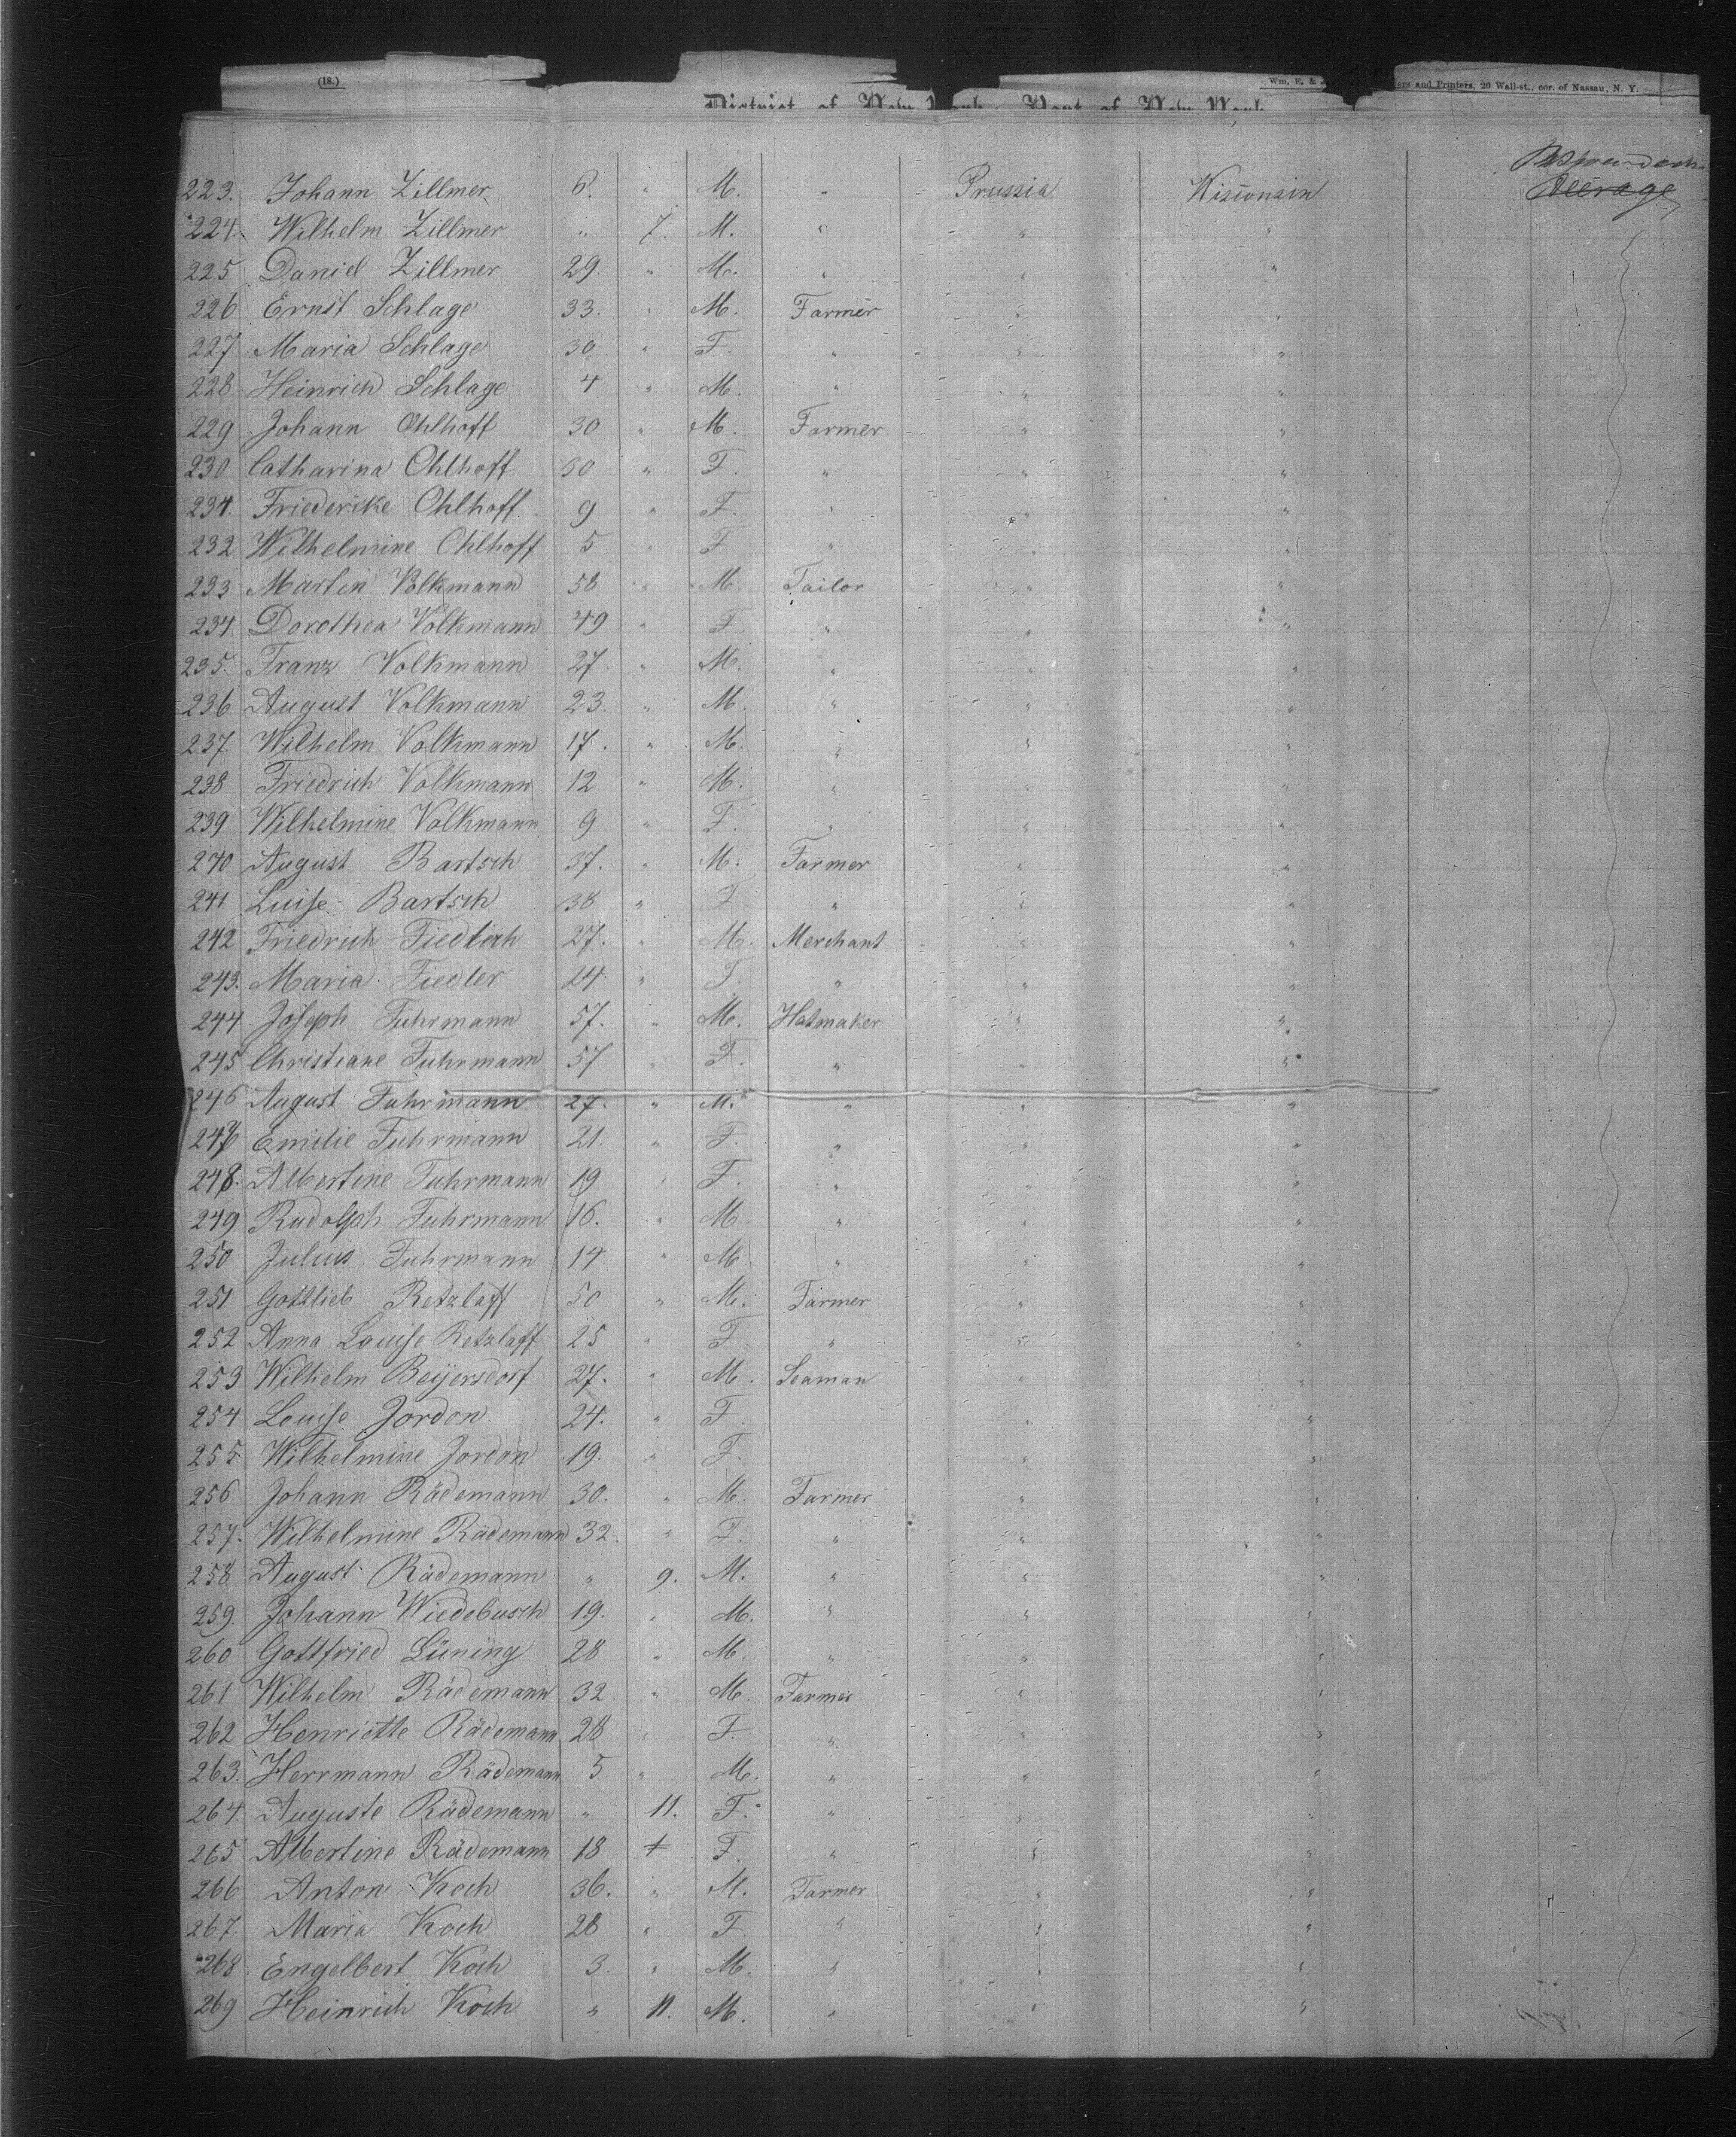 (18.)
Wm. E. & ers and Printers, 20 Wall-st., cor. of Nassau, N. Y.
District of New York, Port of New York
223. Johann Zillmer 6. " M. " Prussia Wisconsin Steerage
224. Wilhelm Zillmer " 7. M. " " "
225 Daniel Zillmer 29. " M. " " "
226 Ernst Schlage 33. " M. Farmer " "
227 Maria Schlage 30 " F. " " "
228 Heinrich Schlage 4 " M. " " "
229 Johann Ohlhoff 30 " M. Farmer " "
230 Catharina Ohlhoff 30 " F. " " "
231. Friederike Ohlhoff 9 " F. " " "
232 Wilhelmine Ohlhoff 5 " F " " "
233 Martin Volkmann 58 " M Tailor " "
234 Dorothea Volkmann 49 " F " " "
235. Franz Volkmann 27. " M. " " "
236 August Volkmann 23. " M. " " "
237. Wilhelm Volkmann 17. " M. " " "
238 Friedrich Volkmann 12 " M. " " "
239 Wilhelmine Volkmann 9 " F. " " "
240 August Bartsch 37. " M. Farmer " "
241 Luise Bartsch 38 " F " " "
242 Friedrich 27. " M. Merchant " "
243. Maria Fiedler 24 " F. " " "
244 Joseph Fuhrmann 57. " M. Hatmaker " "
245 Christiane Fuhrmann 57 " F. " " "
246 August Fuhrmann 27. " M. " " "
247 Emilie Fuhrmann 21. " F. " " "
248. Albertine Fuhrmann 19 " F. " " "
249 Rudolph Fuhrmann 16. " M. " " "
250 Julius Fuhrmann 14 " M. " " "
251 Gottlieb Retzlaff 50 " M. Farmer " "
252 Anna Louise Retzlaff 25 " F. " " "
253 Wilhelm Beijersdorf 27. " M. Seaman " "
254 Louise Jordon 24. " F. " "
255. Wilhelmine Jordon 19. " F. " "
256 Johann Rädemann 30. " M. Farmer " "
257. Wilhelmine Rädemann 32. " F. " " "
258 August Rädemann " 9. M. " " "
259. Johann Wiedebusch 19. " M. " " "
260 Gottfried Lüning 28 " M. " " "
261 Wilhelm Rädemann 32 " M. Farmer " "
262 Henriette Rädemann 28 " F. " " "
263. Herrmann Rädemann 5 " M. " " "
264. Auguste Rädemann " 11. F. " " "
265 Albertine Rädemann 18 + F. " " "
266 Anton Koch 36. " M. Farmer " "
267. Maria Koch 28 " F. " " "
268 Engelbert Koch 3. " M. " " "
269 Heinrich Koch " 11. M. " " "